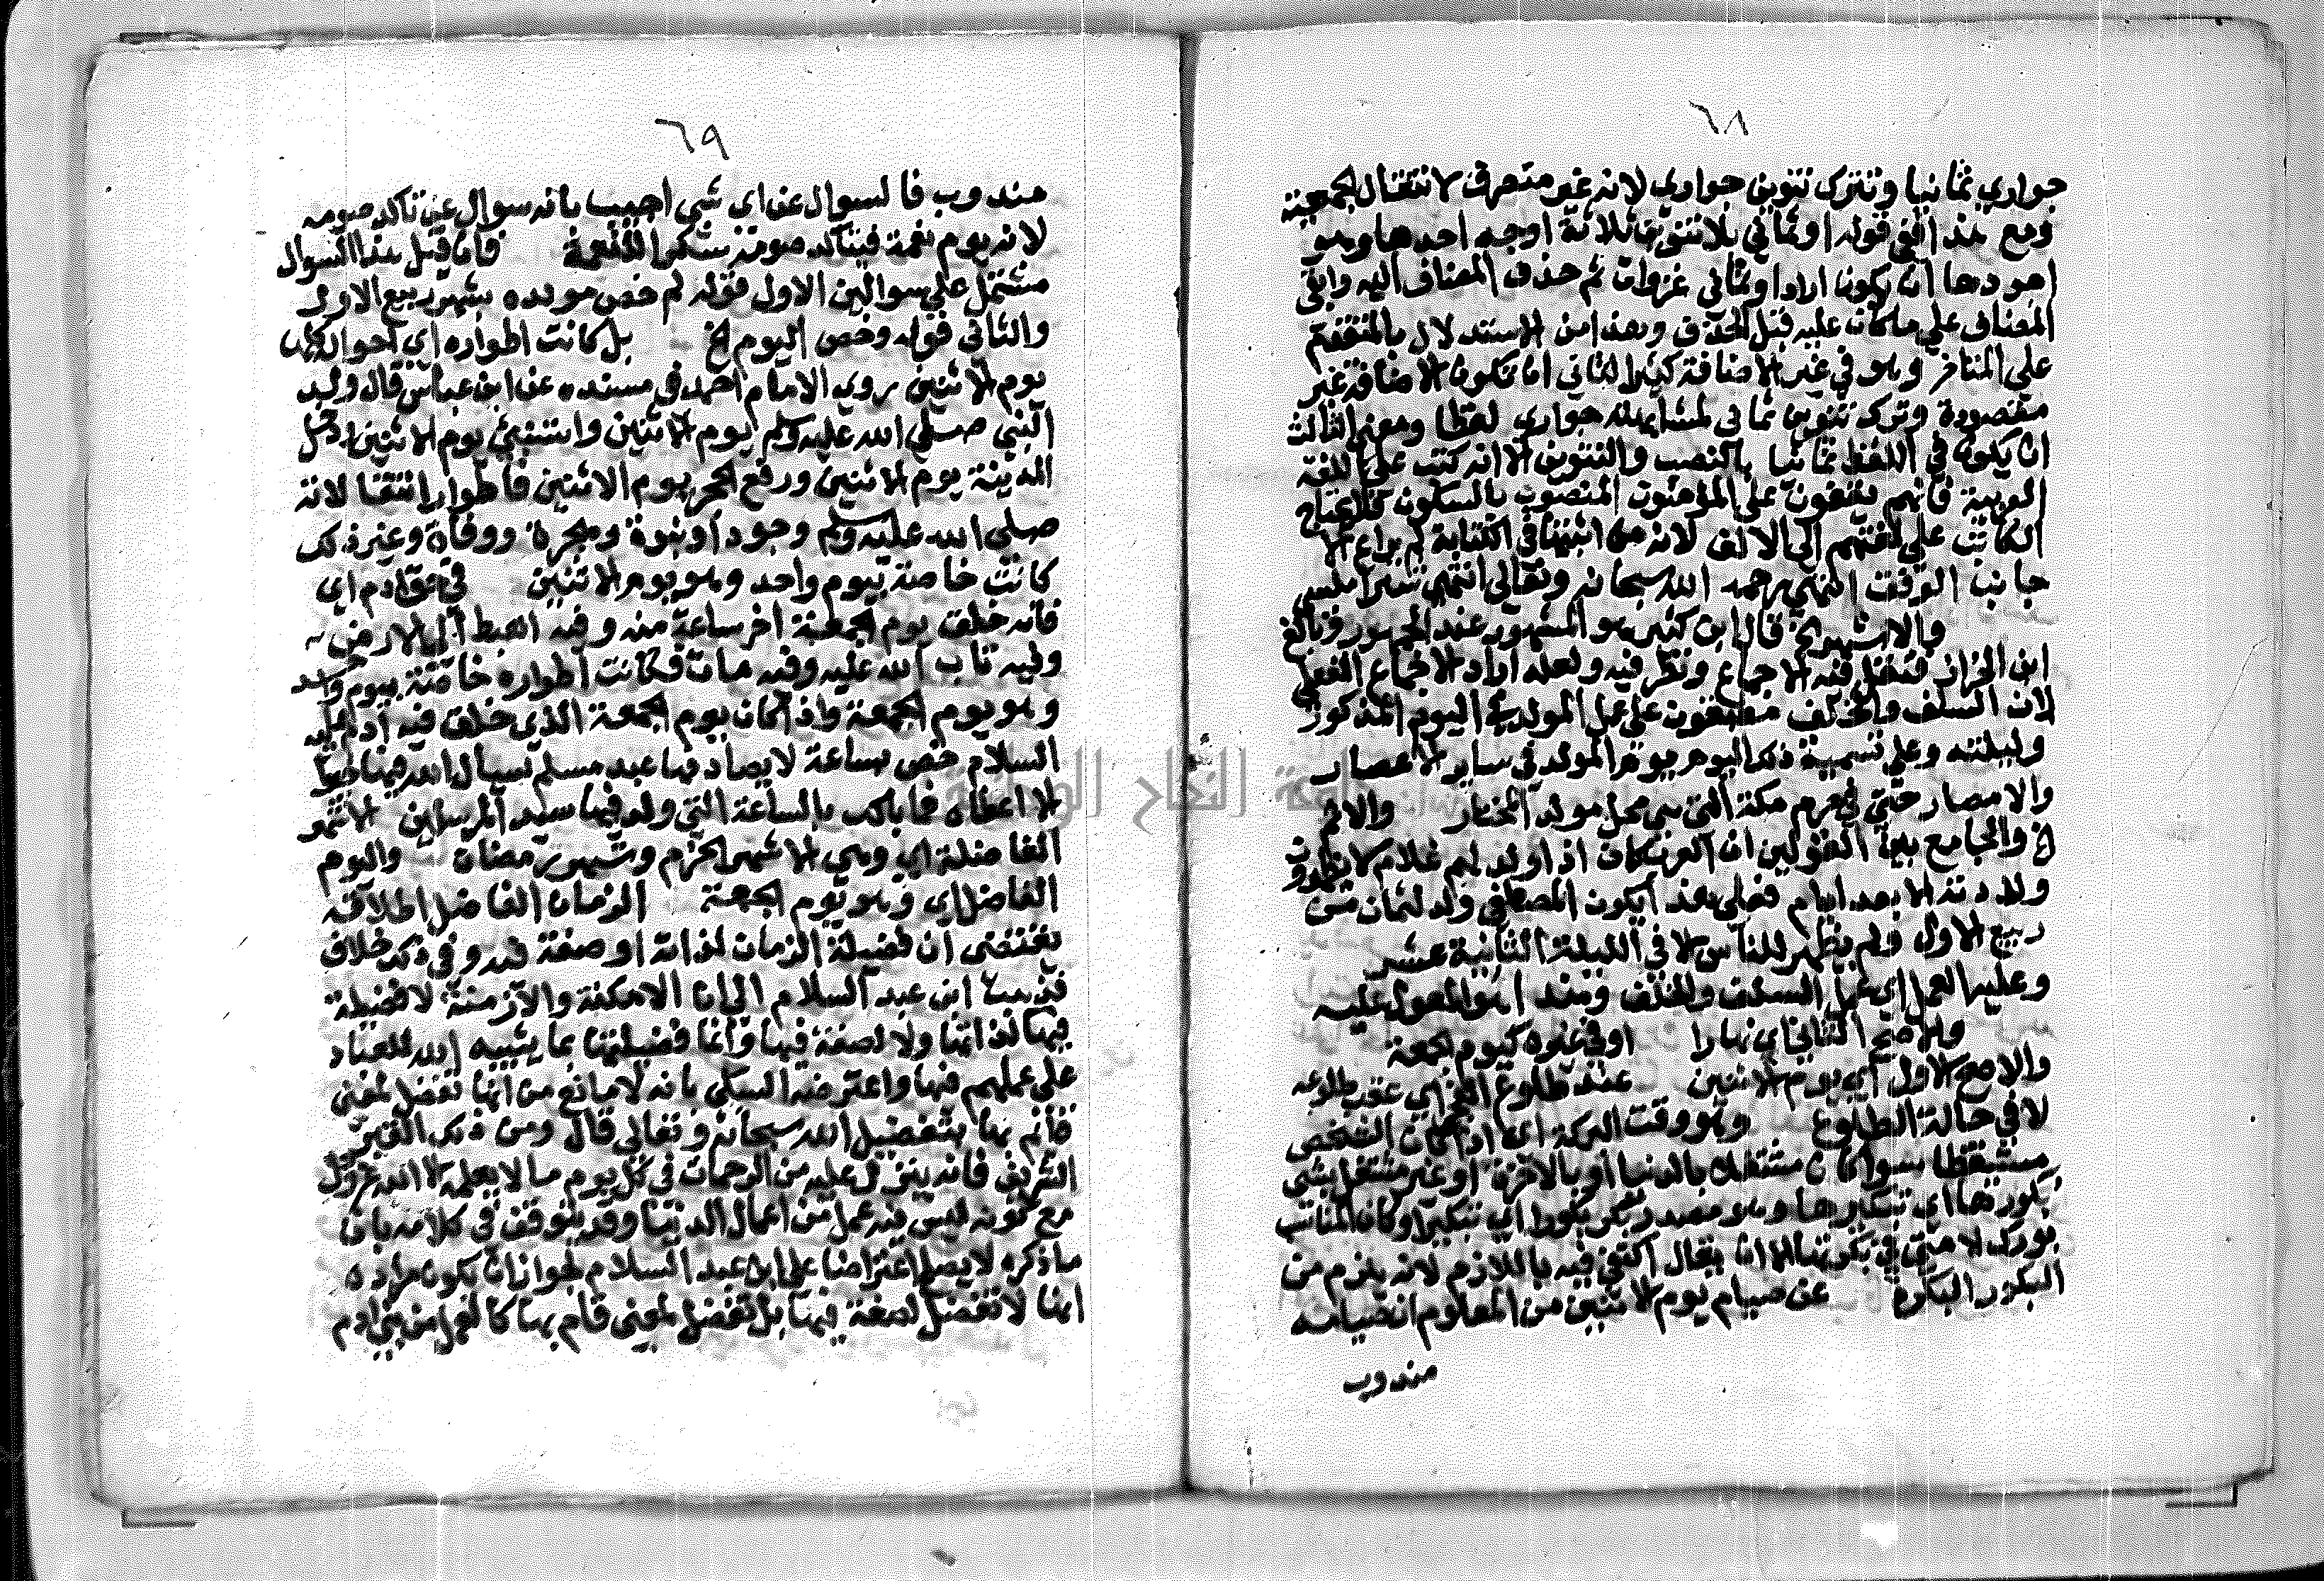 ٦٨
جواري ثمانيا وتترك تنوين جواري لانه غير منصرف لانتقال الجمعية
ومع هذا ففي قوله او ثماني بلا تنوين ثلاثة اوجه احدها وهو
اجودها ان يكون اراد او ثماني غزوات ثم حذف المضاف اليه وابقي
المضاف علي ما كان عليه قبل الحذف وهذا من الاستدلال بالمتقدم
علي المتاخر وهو في غير الاضافة كثير الثاني ان تكون الاضافة غير
مقصودة وترك تنوين ثماني لمشابهته جواري لفظا ومعني الثالث
ان يكون في اللفظ ثمانيا بالنصب والتنوين الا انه كتب علي اللغة
الربعية فانهم يقفون علي المنون المنصوب بالسكون فلا يحتاج
الكاتب علي لغتهم الي الالف لانه من اثبتها في الكتابة لم يراع الا
جانب الوقف انتهي رحمه الله سبحانه وتعالى انتهي شبراملسي
والاشهر الخ قال ابن كثير هو المشهور عند الجمهور وبالغ
ابن الجزار فنقل فيه الاجماع ونظر فيه ولعله اراد الاجماع الفعلي
لان السلف والخلف متفقون علي عمل المولد في اليوم المذكور
وليلته وعلي تسمية ذلك اليوم بيوم المولد في ساير الاعصار
والامصار حتي في حرم مكة التي هي محل مولد المختار والاثم
الخ والجامع بين القولين ان العرب كان اذا ولد لهم غلام لا يظهرون
ولادته الا بعد ايام فعلي هذا يكون المصطفي ولد لثمان من
ربيع الاول ولم يظهر للناس الا في الليلة الثانية عشر
وعليه العمل اي عمل السلف والخلف وهذا هو المعول عليه
والاصح الثاني اي نهارا او في غيره كيوم الجمعة
والاصح الاول اي يوم الاثنين عند طلوع الفجر اي عقب طلوعه
لا في حالة الطلوع وهو وقت البركة اي اذا كان الشخص
مستيقظا سوا كان مشتغلا بالدنيا او بالاخرة او غير مشتغل بشي
بكورها اي تبكيرها وهو مصدر بكر بكورا اي تبكيرا وكان المناسب
بورك لامتي في بكرتها الا ان يقال اكتفي فيه باللازم لانه يلزم من
البكور البكرة عن صيام يوم الاثنين من المعلوم ان صيامه
مندوب
٦٩
مندوب فالسوال عن اي شي اجيب بانه سوال عن تاكد صومه
لانه يوم نعمة فيتاكد صومه شكرا للنعمة فان قيل هذا السوال
مشتمل علي سوالين الاول قوله لم خص مولده بشهر ربيع الاول
والثاني قوله وخص اليوم الخ بل كانت اطواره اي احواله كلها
يوم الاثنين روي الامام احمد في مسنده عن ابن عباس قال ولد
النبي صلي الله عليه وسلم يوم الاثنين واستنبئ يوم الاثنين ودخل
المدينة يوم الاثنين ورفع الحجر يوم الاثنين فاطوار انتقالاته
صلي الله عليه وسلم وجودا ونبوة وهجرة ووفاة وغير ذلك
كانت خاصة بيوم واحد وهو يوم الاثنين في حق ادم اي
فانه خلق يوم الجمعة اخر ساعة منه وفيه اهبط الي الارض
وفيه تاب الله عليه وفيه مات فكانت اطواره خاصة بيوم واحد
وهو يوم الجمعة واذا كان يوم الجمعة الذي خلق فيه ادم عليه
السلام خص بساعة لا يصادفها عبد مسلم يسال الله فيها خيرا
الا اعطاه فما بالك بالساعة التي ولد فيها سيد المرسلين الاشهر
الفاضلة اي وهي الاشهر الحرم وشهر رمضان واليوم
الفاضل اي وهو يوم الجمعة الزمان الفاضل اطلاقه
يقتضي ان فضيلة الزمان لذاته او صفة فيه وفي ذلك خلاف
فذهب ابن عبد السلام الي ان الامكنة والازمنة لا فضيلة
فيها لذاتها ولا لصفة فيها وانما فضيلتها بما يثيبه الله للعباد
علي عملهم فيها واعترضه السبكي بانه لا مانع من انها تفضل لمعني
قائم بها بتفضيل الله سبحانه وتعالي قال ومن ذلك القبر
الشريف فانه ينزل عليه من الرحمات في كل يوم ما لا يعلمه الا الله عز وجل
مع كونه ليس فيه عمل من اعمال الدنيا وقد يتوقف في كلامه بان
ما ذكره لا يصلح اعتراضا علي ابن عبد السلام لجواز ان يكون مراده
انها لا تفضل لصفة فيها بل تفضل لمعني قام بها كالعمل من بني ادم